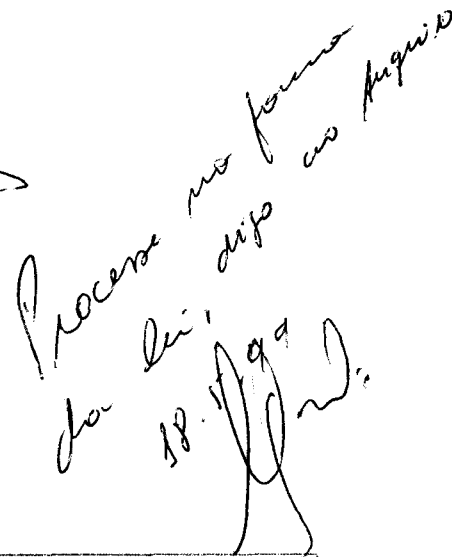 Processe na forma
da lei, digo ao Arquivo
18.